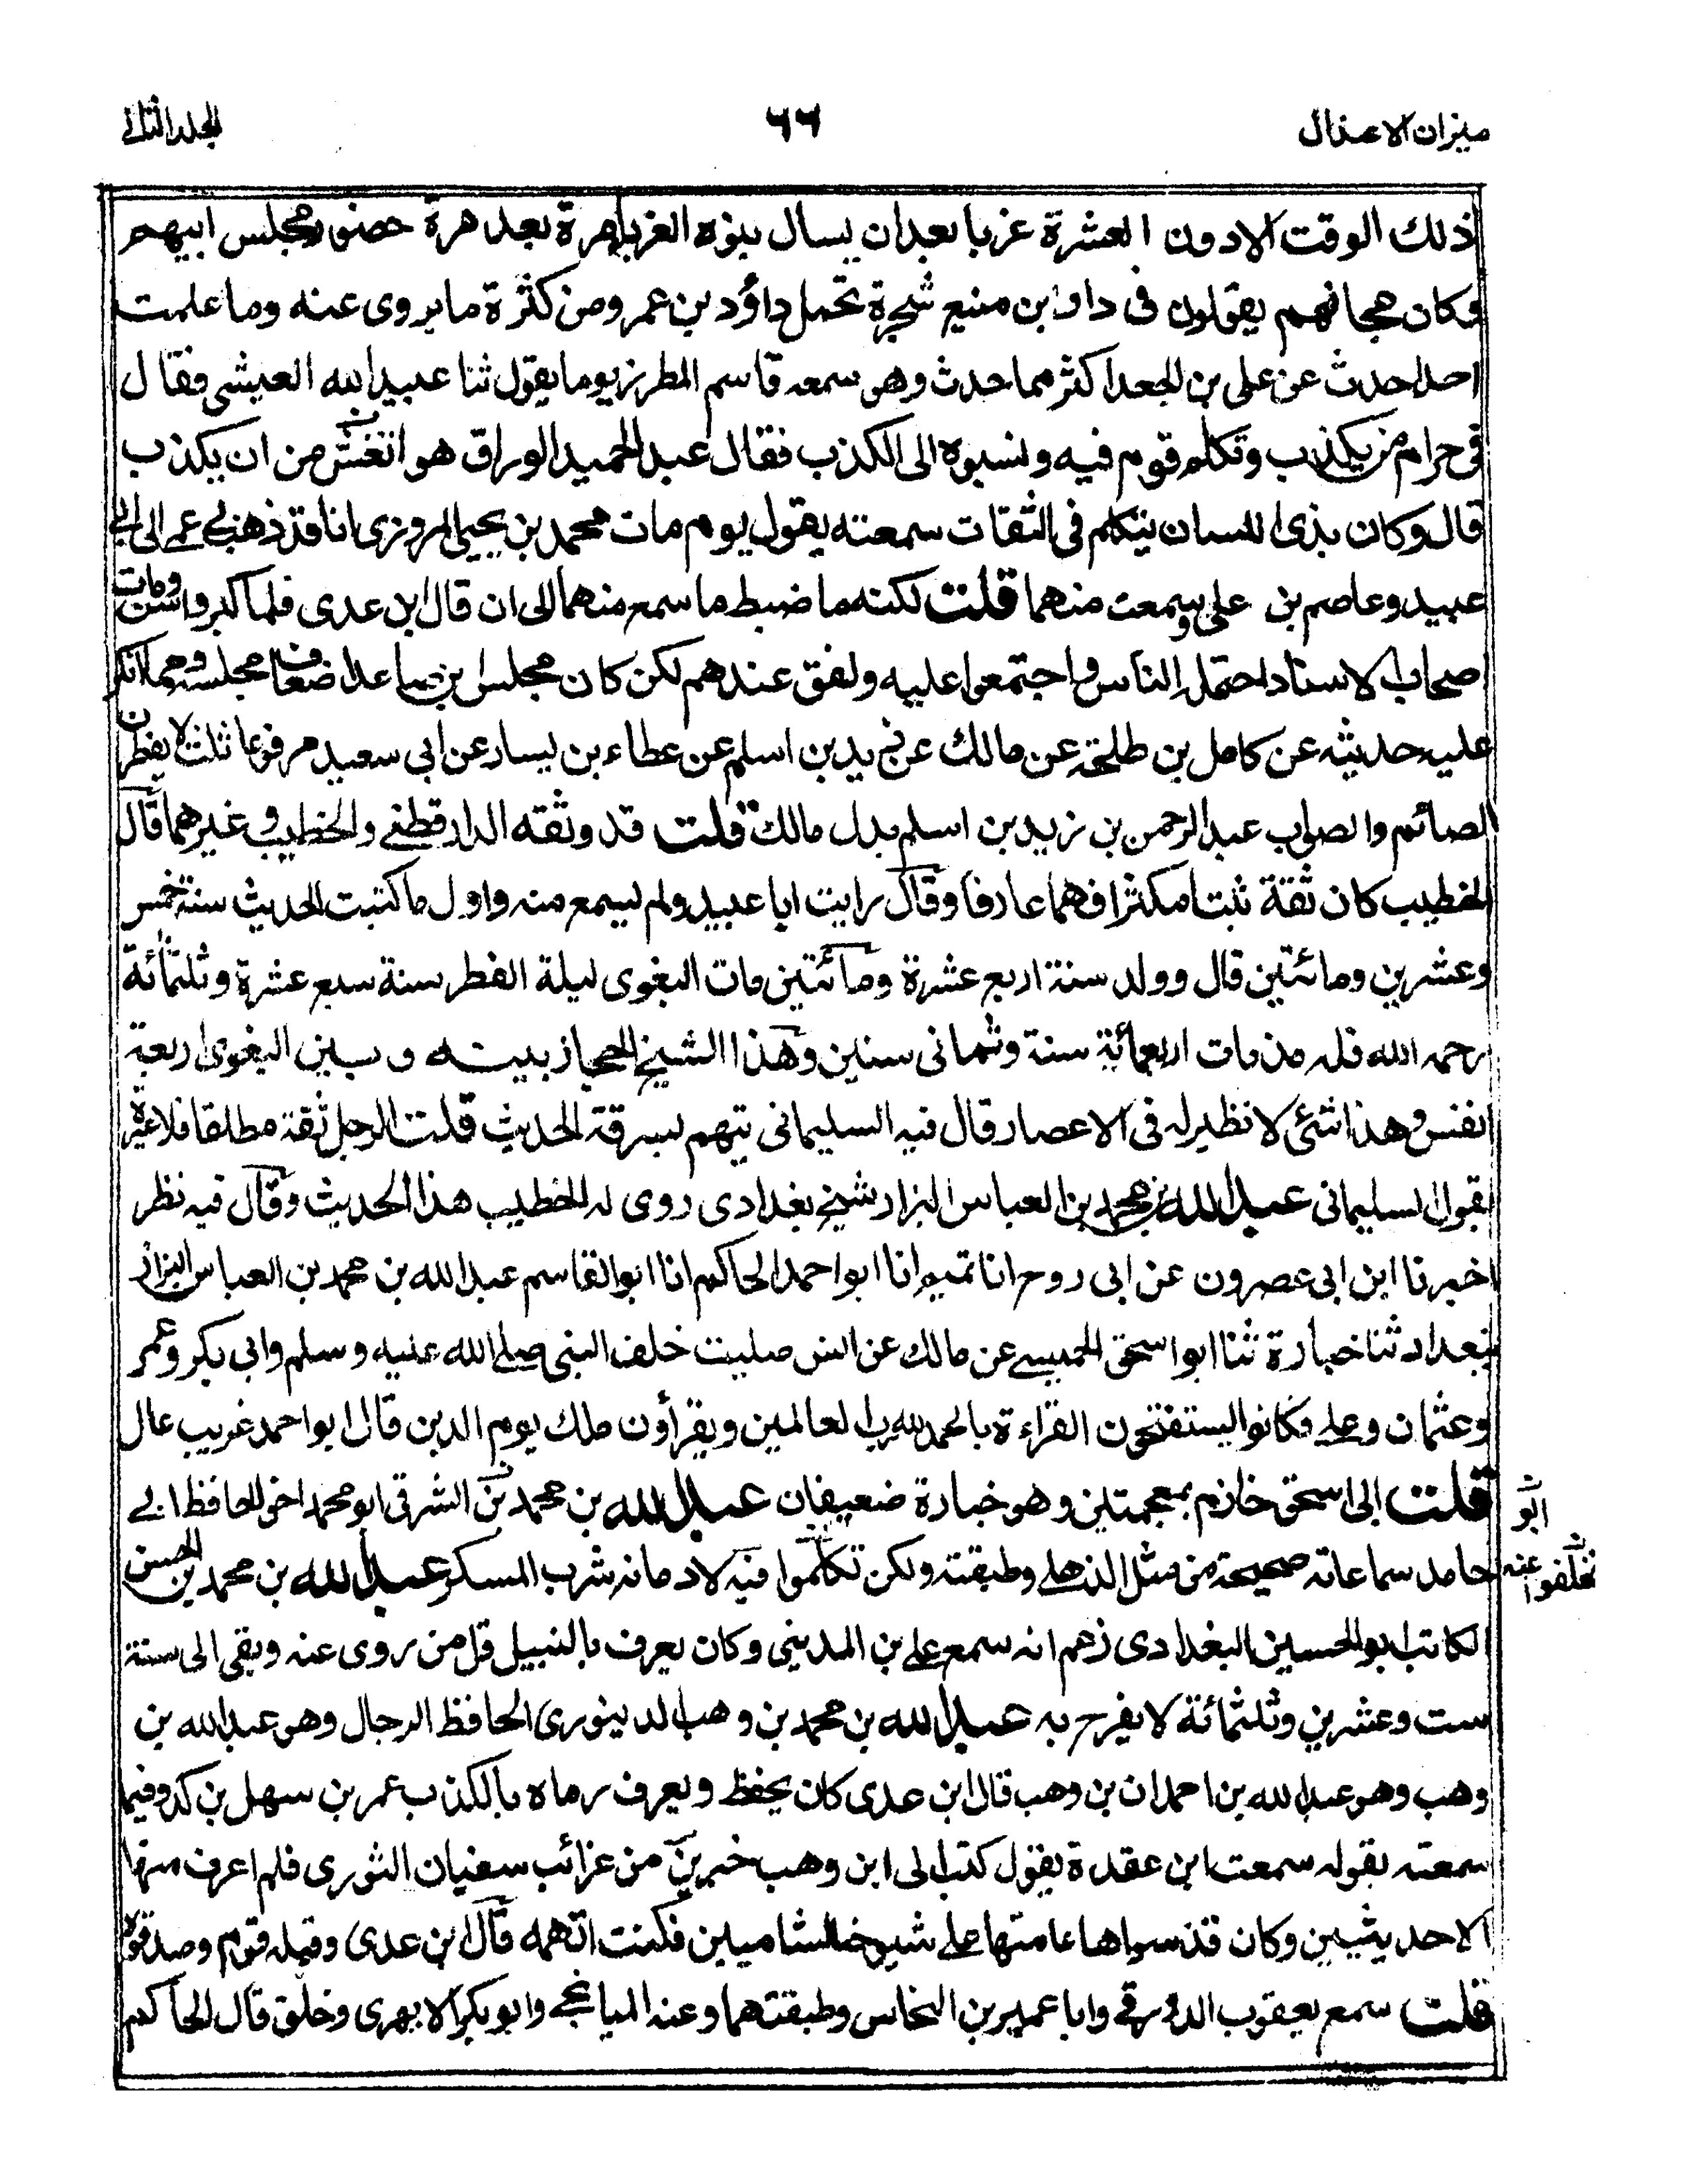 ميزان الاعتدال ٦٦ المجلد الثانى
ذلك الوقت الا دون العشرة غربا بعد ان يسال بنوه الغربا مرة بعد مرة حضور مجلس ابيهم
وكان مجانهم يقولون فى دار ابن منيع شجرة تحمل داؤد بن عمرو من كثرة ما يروى عنه وما علمت
احدا حدث عن على بن الجعد اكثر مما حدث وهو سمعه قاسم المطرز يوما يقول ثنا عبيد الله العيشى فقال
فى حرام من يكذب وتكلم قوم فيه ونسبوه الى الكذب فقال عبد الحميد الوراق هو انغش من ان يكذب
قال وكان بذى اللسان يتكلم فى الثقات سمعته يقول يوم مات محمد بن يحيى المروزى انا قد ذهب بى عمى الى ابى
عبيد وعاصم بن على وسمعت منهما قلت لكنه ما ضبط ما سمع منهما الى ان قال ابن عدى فلما كبر واسن ومات
اصحاب الاسناد احتمل الناس واجتمعوا عليه ونفق عندهم لكن كان مجلس ابن صاعد اضعاف مجلسه ومما انكر
عليه حديثه عن كامل بن طلحة عن مالك عن زيد بن اسلم عن عطاء بن يسار عن ابى سعيد مرفوعا ثلث لا يفطرن
الصائم والصواب عبد الرحمن بن زيد بن اسلم بدل مالك قلت قد وثقه الدارقطنى والخطيب وغيرهما قال
الخطيب كان ثقة ثبتا مكثرا فهما عارفا وقال رايت ابا عبيد ولم يسمع منه واول ما كتبت الحديث سنة خمس
وعشرين ومائتين قال وولد سنة اربع عشرة ومائتين مات البغوى ليلة الفطر سنة سبع عشرة وثلثمائة
رحمه الله فله مذ مات اربعمائة سنة وثمانى سنين وهذا الشيخ الحجاز بيته وبين البغوى اربعة
انفس وهذا شئ لا نظير له فى الاعصار قال فيه السليمانى يتهم بسرقة الحديث قلت الرجل ثقة مطلقا فلا عبرة
بقول السليمانى عبد الله بن محمد بن العباس البزار شيخ بغدادى روى له الخطيب هذا الحديث وقال فيه نظر
اخبرنا ابن ابى عصرون عن ابى روح انا تميم انا ابو احمد الحاكم انا ابو القاسم عبد الله بن محمد بن العباس البزار
ببغداد ثنا خبارة ثنا ابو اسحق الحميسى عن مالك عن انس صليت خلف النبى صلى الله عليه وسلم وابى بكر وعمر
وعثمان وعلى فكانوا يستفتحون القراءة بالحمد لله رب العالمين ويقرأون ملك يوم الدين قال ابو احمد غريب عال
قلت ابى اسحق خازم بمعجمتين وهو خبارة ضعيفان عبد الله بن محمد بن الشرقى ابو محمد اخو الحافظ ابى
ابو
حامد سماعاته صحيحة من مثل الذهلى وطبقته ولكن تكلموا فيه لادمانه شرب المسكر عبد الله بن محمد بن الحسن
الكاتب ابو الحسين البغدادى زعم انه سمع على بن المدينى وكان يعرف بالنبيل قل من روى عنه وبقى الى سنة
ست وعشرين وثلثمائة لا يفرح به عبد الله بن محمد بن وهب الدينورى الحافظ الرجال وهو عبد الله بن
وهب وهو عبد الله بن احمدان بن وهب قال ابن عدى كان يحفظ ويعرف رماه بالكذب عمر بن سهل بن كدو فيما
سمعته يقوله سمعت ابن عقدة يقول كتب الى ابن وهب خبرين من غرائب سفيان الثورى فلم اعرف منها
الا حديثين وكان قد سواها عامتها على شيوخ الشاميين فكنت اتهمه قال ابن عدى وقبله قوم وصدقوه
قلت سمع يعقوب الدورقى وابا عمير بن النحاس وطبقتهما وعنه الميانجى وابو بكر الابهرى وخلق قال الحاكم